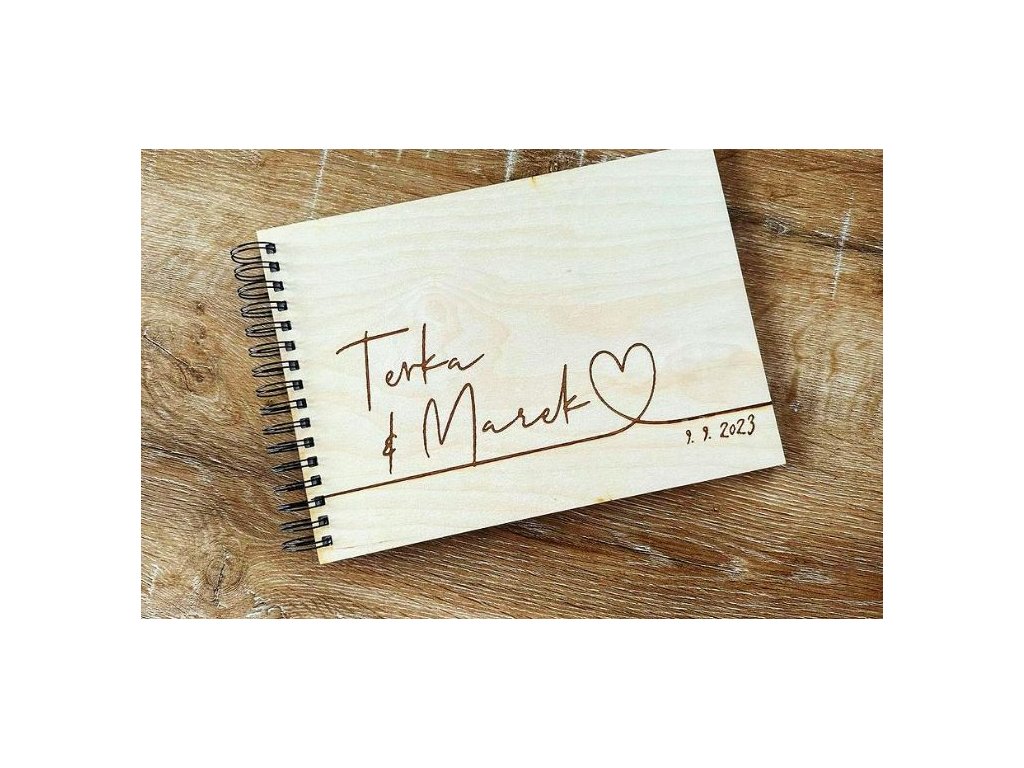 Terka
& Marek
9. 9. 2023